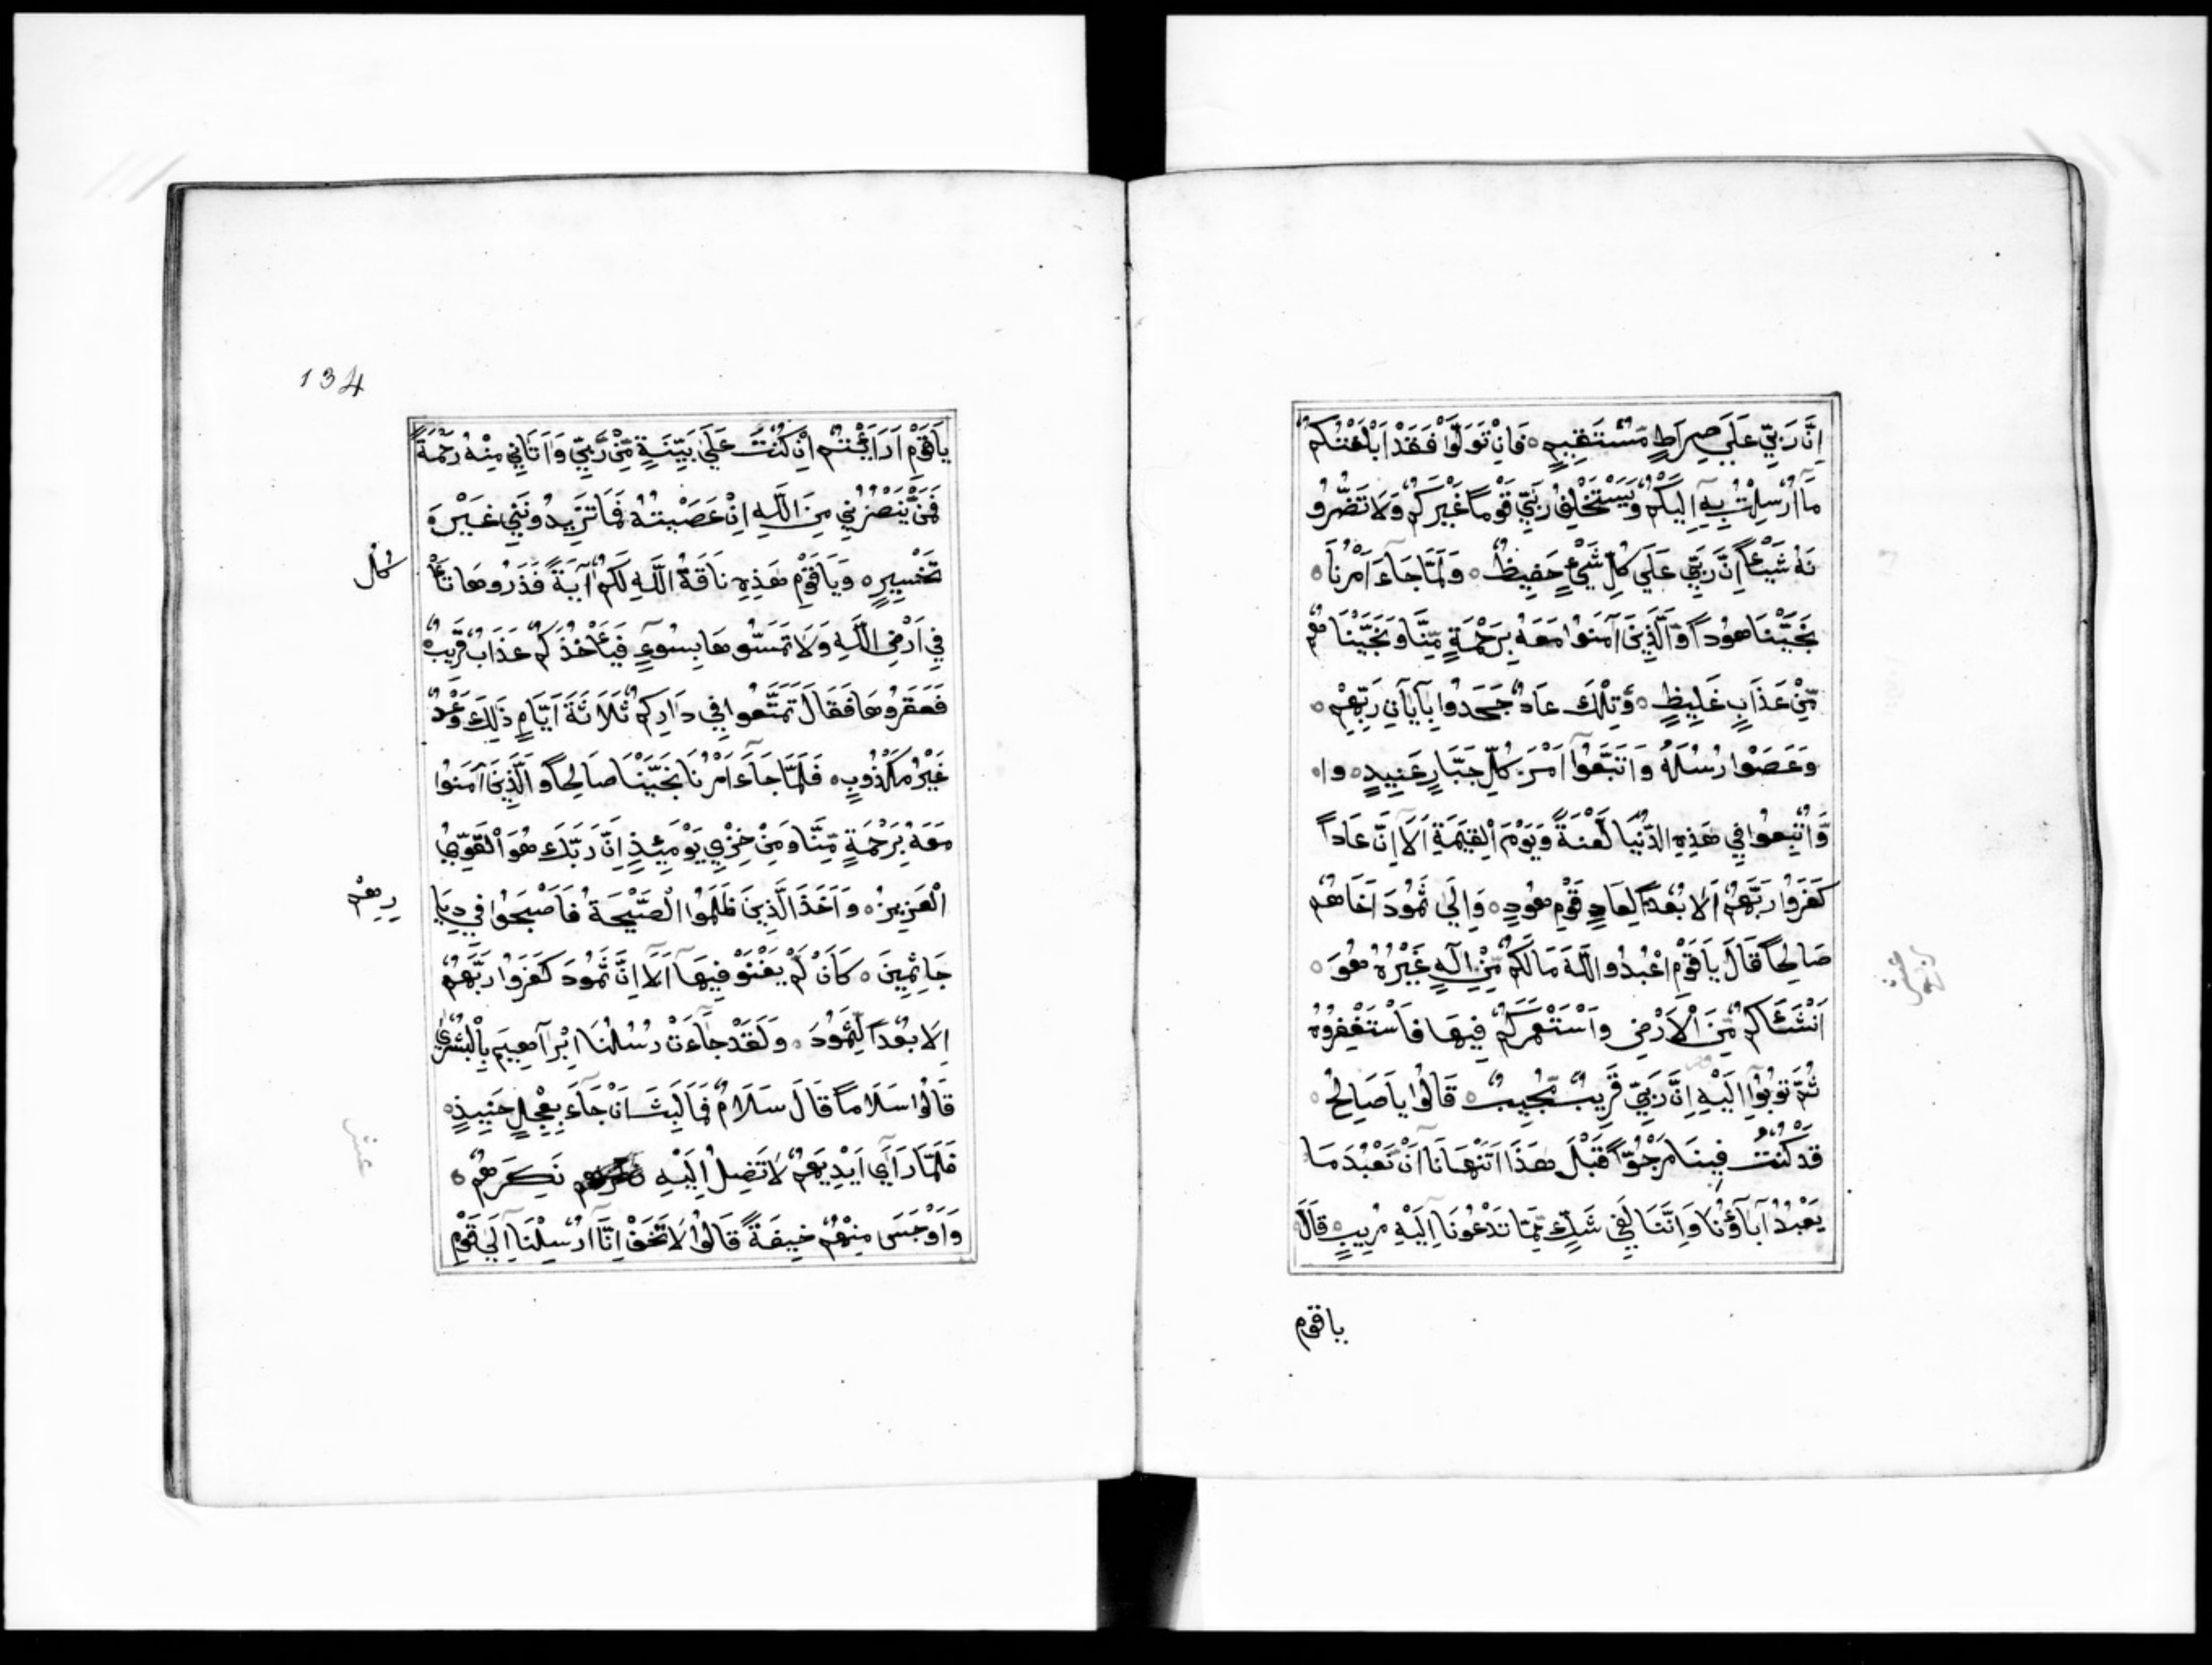 اِنَّ رَبِّيْ عَلَي صِرَاطٍ مُّسْتَقِيْمٍ ۝ فَاِنْ تَوَلَّوْا فَقَدْ اَبْلَغْتُكُمْ
مَّآ اُرْسِلْتُ بِهٖٓ اِلَيْكُمْ وَيَسْتَخْلِفُ رَبِّيْ قَوْمًا غَيْرَكُمْ وَلَا تَضُرُّو
نَهُ شَيْئًا اِنَّ رَبِّيْ عَلَي كُلِّ شَيْءٍ حَفِيْظٌ ۝ وَلَمَّا جَآءَ اَمْرُنَا ۝
نَجَّيْنَا هُوْدًا وَّالَّذِيْنَ آمَنُوْا مَعَهُ بِرَحْمَةٍ مِّنَّا وَنَجَّيْنَا هُمْ
مِّنْ عَذَابٍ غَلِيْظٍ ۝ وَتِلْكَ عَادٌ جَحَدُوْا بِآيَاتِ رَبِّهِمْ ۝
وَعَصَوْا رُسُلَهُ وَاتَّبَعُوْآ اَمْرَ كُلِّ جَبَّارٍ عَنِيْدٍ ۝ وا ۝
وَّاُتْبِعُوْا فِيْ هَذِهِ الدُّنْيَا لَعْنَةً وَّيَوْمَ الْقِيَمَةِ اَلَآ اِنَّ عَادًا
كَفَرُوْا رَبَّهُمْ اَلَا بُعْدًا لِّعَادٍ قَوْمِ هُوْدٍ ۝ وَاِلَي ثَمُوْدَ اَخَاهُمْ
صَالِحًا قَالَ يَاقَوْمِ اعْبُدُوا اللَّهَ مَالَكُمْ مِّنْ اِلَهٍ غَيْرُهُ هُوَ ۝
اَنْشَئَاكُمْ مِّنَ الْاَرْضِ وَاسْتَعْمَرَكُمْ فِيْهَا فَاسْتَغْفِرُوْهُ
ثُمَّ تُوْبُوْآ اِلَيْهِ اِنَّ رَبِّيْ قَرِيْبٌ مُّجِيْبٌ ۝ قَالُوْا يَا صَالِحُ ۝
قَدْ كُنْتَ فِيْنَا مَرْجُوًّا قَبْلَ هَذَا اَتَنْهَانَآ اَنْ نَّعْبُدَ مَا
يَعْبُدُ آبَآؤُنَا وَاِنَّنَا لَفِيْ شَكٍّ مِّمَّا تَدْعُوْنَا اِلَيْهِ مُرِيْبٍ ۝ قَالَ
ياقوم
134
يَاقَوْمِ اَرَاَيْتُمْ اِنْ كُنْتُ عَلَي بَيِّنَةٍ مِّنْ رَّبِّيْ وَاٰتَانِيْ مِنْهُ رَحْمَةً
فَمَنْ يَّنْصُرُنِيْ مِنَ اللَّهِ اِنْ عَصَيْتُهُ فَمَا تَزِيْدُوْنَنِيْ غَيْرَ ۝
تَخْسِيْرٍ ۝ وَيَاقَوْمِ هَذِهِ نَاقَةُ اللَّهِ لَكُمْ آيَةً فَذَرُوْهَا تَأْ
كل
فِيْ اَرْضِ اللَّهِ وَلَا تَمَسُّوْهَا بِسُوْءٍ فَيَأْخُذَكُمْ عَذَابٌ قَرِيْبٌ
فَعَقَرُوْهَا فَقَالَ تَمَتَّعُوْا فِيْ دَارِكُمْ ثَلَاثَةَ اَيَّامٍ ذَلِكَ وَعْدٌ
غَيْرُ مَكْذُوْبٍ ۝ فَلَمَّا جَآءَ اَمْرُنَا نَجَّيْنَا صَالِحًا وَّالَّذِيْنَ آمَنُوْا
مَعَهُ بِرَحْمَةٍ مِّنَّا وَمِنْ خِزْيِ يَوْمَئِذٍ اِنَّ رَبَّكَ هُوَ الْقَوِيُّ
الْعَزِيْزُ ۝ وَاَخَذَ الَّذِيْنَ ظَلَمُوا الصَّيْحَةُ فَاَصْبَحُوْا فِيْ دِيَا
رِهِمْ
جَاثِمِيْنَ ۝ كَاَنْ لَّمْ يَغْنَوْا فِيْهَآ اَلَآ اِنَّ ثَمُوْدَ كَفَرُوْا رَبَّهُمْ
اَلَا بُعْدًا لِّثَمُوْدَ ۝ وَلَقَدْ جَآءَتْ رُسُلُنَا اِبْرَاهِيْمَ بِالْبُشْرَي
قَالُوْا سَلَامًا قَالَ سَلَامٌ فَمَا لَبِثَ اَنْ جَآءَ بِعِجْلٍ حَنِيْذٍ ۝
فَلَمَّا رَآَي اَيْدِيَهُمْ لَا تَصِلُ اِلَيْهِ نَكِرَهُمْ ۝
وَاَوْجَسَ مِنْهُمْ خِيْفَةً قَالُوْا لَا تَخَفْ اِنَّآ اُرْسِلْنَا اِلَي قَوْمِ